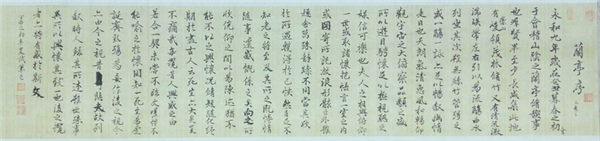 蘭亭序
永和九年歲在癸丑暮春之初會
于會稽山陰之蘭亭脩禊事
也群賢畢至少長咸集此地
有崇山峻領茂林脩竹又有清流激
湍暎帶左右引以為流觴曲水
列坐其次雖無絲竹管弦之
盛一觴一詠亦足以暢敘幽情
是日也天朗氣清惠風和暢仰
觀宇宙之大俯察品類之盛
所以遊目騁懷足以極視聽之
娛信可樂也夫人之相與俯仰
一世或取諸懷抱悟言一室之內
或因寄所託放浪形骸之外雖
趣舍萬殊靜躁不同當其欣
於所遇蹔得於己快然自足不
知老之將至及其所之既惓情
隨事遷感慨係之矣向之所
欣俛仰之間以為陳迹猶不
能不以之興懷況脩短隨化終
期於盡古人云死生亦大矣豈
不痛哉每攬昔人興感之由
若合一契未嘗不臨文嗟悼不
能喻之於懷固知一死生為虛
誕齊彭殤為妄作後之視今
亦由今之視昔悲夫故列
敘時人錄其所述雖世殊事
異所以興懷其致一也後之攬
者亦將有感於斯文